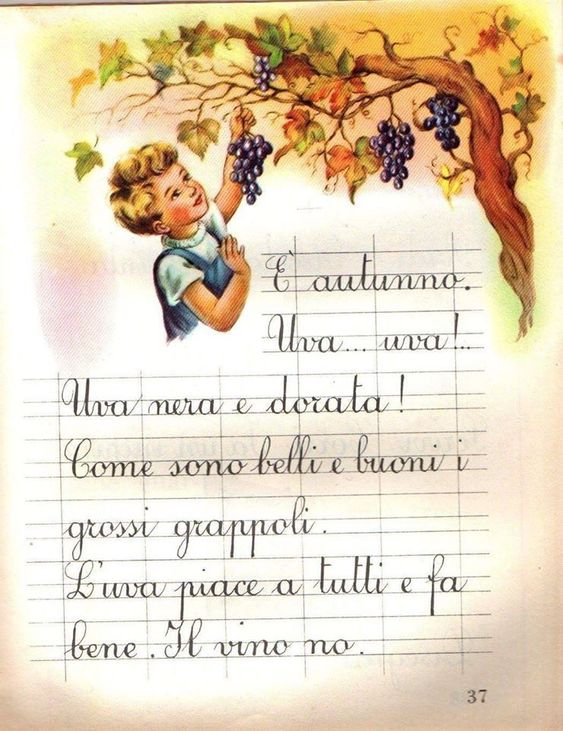 È autunno.
Uva... uva!..
Uva nera e dorata!
Come sono belli e buoni i
grossi grappoli.
L'uva piace a tutti e fa
bene. Il vino no.
37